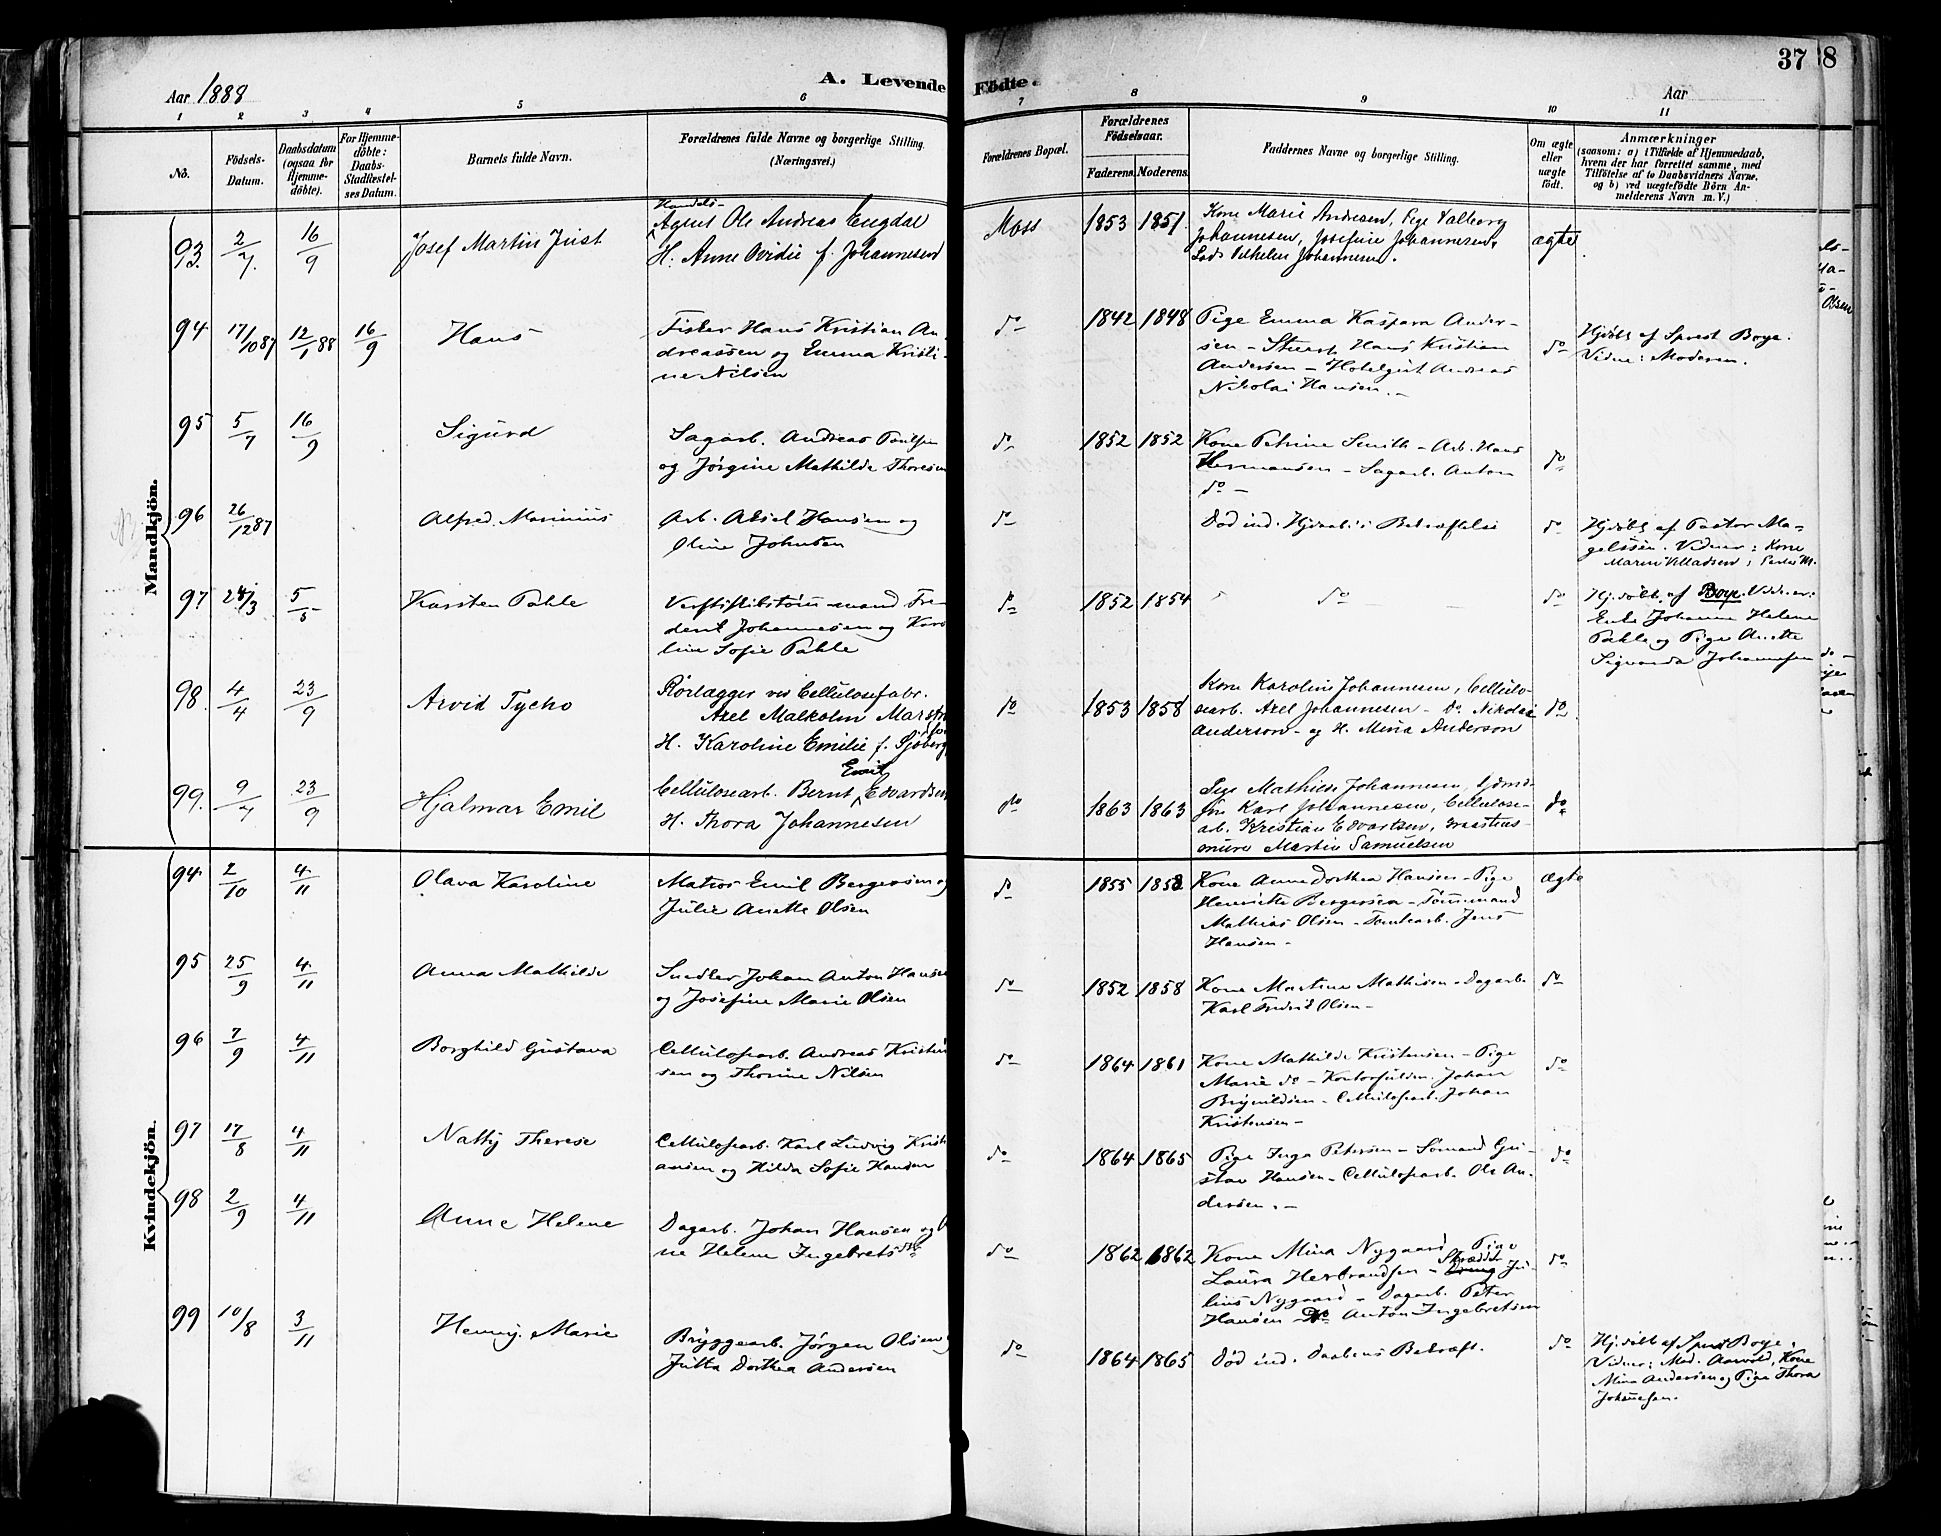 Aar 1888
A. Levende Födte.
37
8
Aar
1 2 3 4 5 6 7 8 9 10 11
No.
Födsels-Datum.
Daabsdatum (ogsaa for Hjemme-döbte).
For Hjemme-döbte: Daabs-Stadfæstel-ses Datum.
Barnets fulde Navn.
Forældrenes fulde Navne og borgerlige Stilling. (Næringsvei.)
Forældrenes Bopæl.
Forældrenes Födselsaar.
Faderens. Moderens.
Faddernes Navne og borgerlige Stilling.
Om ægte eller uægte födt.
Anmærkninger
(saasom: a) i Tilfælde af Hjemmedaab,
hvem der har forrettet samme, med
Tilföielse af to Daabsvidners Navne,
og b) ved uægtefödte Börn An-
melderens Navn m.V.)
Mandkjön.
93. 2/7. 16/9 Josef Martin Just
Handels-
Agent Ole Andreas Engdal
H. Anne Ovidie f. Johannesen
Moss 1853 1851.
Kone Marie Andresen, Pige Valborg
Johannesen, Josefine Johannesen,
Lods Vilhelm Johannesen.
ægte
94 17/10 87 12/1 88 16/9 Hans
Fisker Hans Kristian An-
dreassen og Emma Kristi-
ne Nilsen
do 1842 1848
Pige Emma Kaspara Ander-
sen – Hans Kristian
Andersen – Andreas
Nikolai Hansen. –
do
Hjdöbt af Sprest Boye.
Vidne: Moderen.
95 5/7 16/9 Sigurd
Sagarb. Andreas Paulsen
og Jørgine Mathilde Thoresen
do 1852 1852
Kone Petrine Smith – Arb. Hans
Hermansen – Sagarb. Anton
do –
do
96 26/12 87 Alfred Marinius
Arb. Aksel Hansen og
Oline Johnsen
do
Död ind. Hjdaabs Bekræftelse
do
Hjdöbt af Pastor Ma-
gelssen. Vidner: Kone
Maren Villadsen,
97 28/3 5/5 Karsten Pahle
mand Fre-
derik Johannesen og Karo
line Sofie Pahle
do 1852 1854
do
do
Hjdöbt af Boye. Vidner:
Enke Johanne Helene
Pahle og Pige Anette
Johannesen
98. 4/4 23/9 Arvid Tycho
Rørlægger ved Cellulosefabr.
Axel Malkolm
H. Karoline Emilie f. Sjöberg
do 1853 1858
Kone Karoline Johannesen, Cellulo-
searb. Axel Johannesen – Do. Nikolai
Anderson – og H. Mina Anderson
do
99. 9/7 23/9 Hjalmar Emil
Emil
Cellulosearb. Bernt Edvardsen
H. Thora Johannesen
do 1863 1863
Pige Mathilde Johannesen,
Karl Johannesen, Cellulose-
arb. Kristian Edvartsen,
Martin Samuelsen
do
Kvindekjön.
94. 2/10 4/11 Olava Karoline
Matros Emil Bergersen og
Julie Anette Olsen
do 1855 1858
Kone Anne Dorthea Hansen – Pige
Henriette Bergersen – Tömmermand
Mathias Olsen – Tomtearb. Jens
Hansen –
ægte
95 25/9 4/11 Anna Mathilde
Snedker Johan Anton Hansen
og Josefine Marie Olsen
do 1852 1858
Kone Martine Mathisen – Dagarb.
Karl Fredrik Olsen –
do
96 7/9 4/11 Borghild Gustava
Cellulosearb. Andreas Kristen
sen og Thorine Nilsen
do 1864 1861
Kone Mathilde Kristensen – Pige
Marie do – Kontorfuldm. Johan
Brynildsen – Cellulosearb. Johan
Kristensen –
do
97 17/8 4/11 Natty Therese
Cellulosearb. Karl Ludvig Kristi
ansen og Hilda Sofie Hansen
do 1864 1865
Pige Inga Petersen – Sömand Gu-
stav Hansen – Cellulosearb. Ole An-
dersen. –
do
98 2/9 4/11 Anne Helene
Dagarb. Johan Hansen og
ne Helene Ingebretsdtr
do 1862 1862
Kone Mina Nygaard – Pige
Laura Herbrandsen – Ju-
lius Nygaard – Dagarb. Peter
Hansen – Do Anton Ingebretsen
do
99 10/8 3/11 Henny Marie
Bryggearb. Jörgen Olsen
Jutta Dorthea Andersen
do 1864 1865
Död ind. Daabens Bekræft.
do
Hjdöbt af Sprest Boye.
Vidner: Mad. Aarvold, Kone
Mina Andersen og Pige Thora
Johannesen.